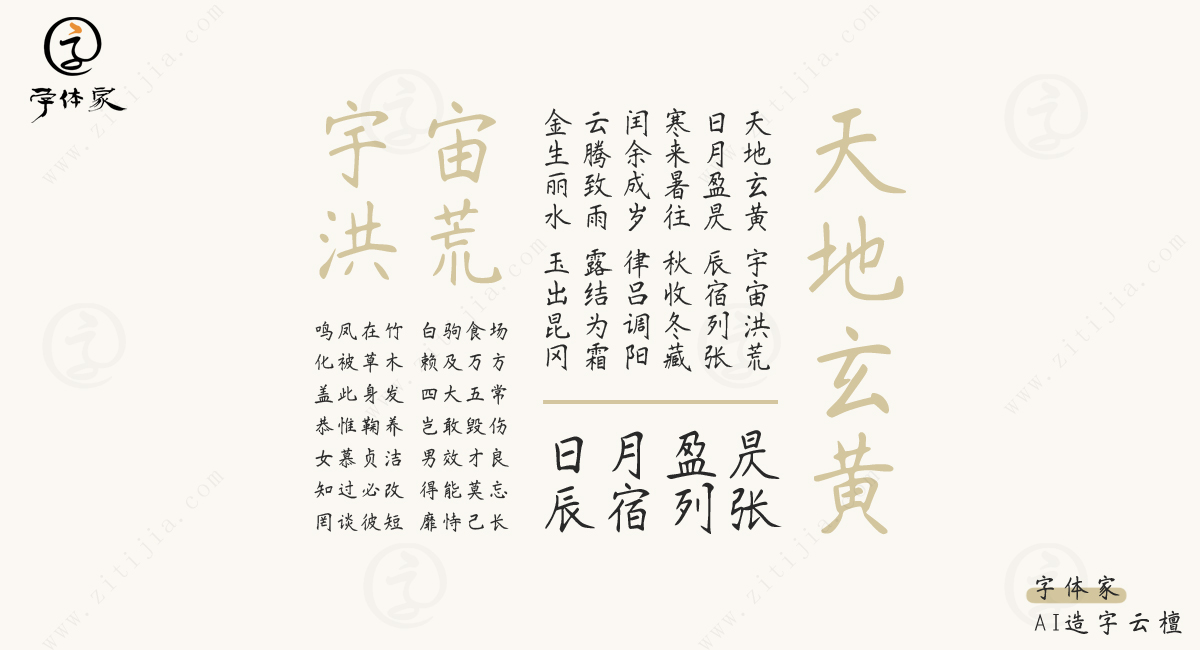 字体家
天地玄黄
天地玄黄 宇宙洪荒
日月盈昃 辰宿列张
寒来暑往 秋收冬藏
闰余成岁 律吕调阳
云腾致雨 露结为霜
金生丽水 玉出昆冈
日月盈昃
辰宿列张
宇宙
洪荒
鸣凤在竹 白驹食场
化被草木 赖及万方
盖此身发 四大五常
恭惟鞠养 岂敢毁伤
女慕贞洁 男效才良
知过必改 得能莫忘
罔谈彼短 靡恃己长
字体家
AI造字云檀
www.zitijia.com
www.zitijia.com
www.zitijia.com
www.zitijia.com
www.zitijia.com
www.zitijia.com